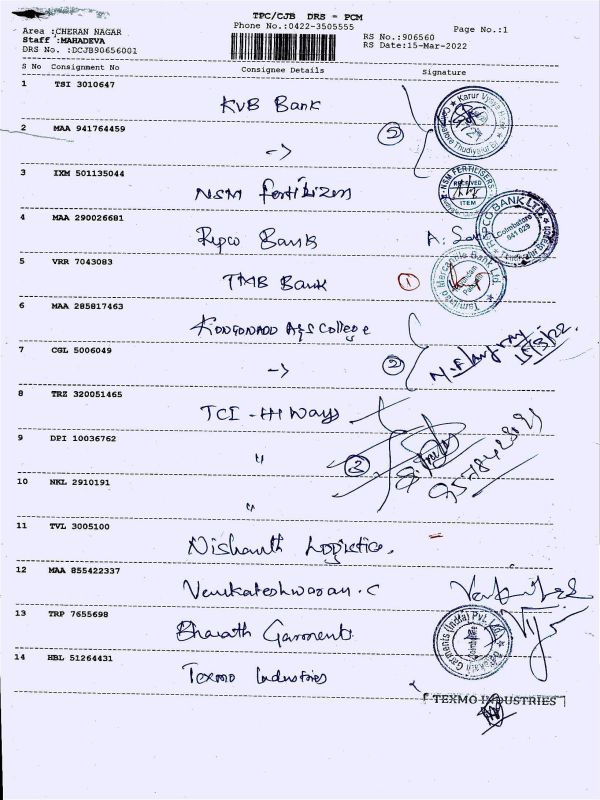 TPC/CJB DRS - PCM
Phone No.:0422-3505555
Page No.:1
Area :CHERAN NAGAR
Staff :MAHADEVA
DRS No. :DCJB90656001
RS No.:906560
RS Date:15-Mar-2022
S No Consignment No Consignee Details Signature
1 TSI 3010647 KVB Bank
2 MAA 941764459 ->
3 IXM 501135044 NSM Fertilizers
4 MAA 290026681 Repco Bank
5 VRR 7043083 TMB Bank
6 MAA 285817463 Kongunadu Arts College
7 CGL 5006049 ->
8 TRZ 320051465 TCI - HH Ways
9 DPI 10036762 "
10 NKL 2910191 "
11 TVL 3005100 Nishanth Logistics.
12 MAA 855422337 Venkateshwaran.C
13 TRP 7655698 Bharath Garments
14 HBL 51264431 Texmo Industries
5
NSM FERTILISERS
RECEIVED
ITEM
REPCO BANK LTD.
Coimbatore
641 029
1
Tamilnad Mercantile Bank Ltd.
2
15/3/22.
3
Garments (India) Pvt. Ltd.
TEXMO INDUSTRIES